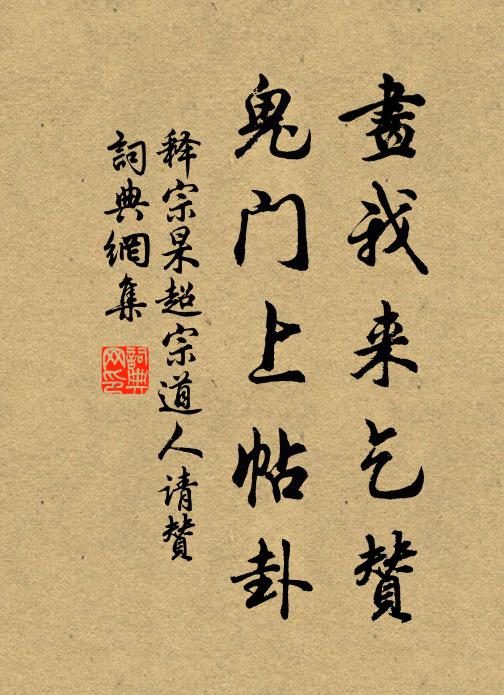 畫我来乞赞
鬼门上帖卦
释宗杲超宗道人请赞
詞典網集
詞典网印